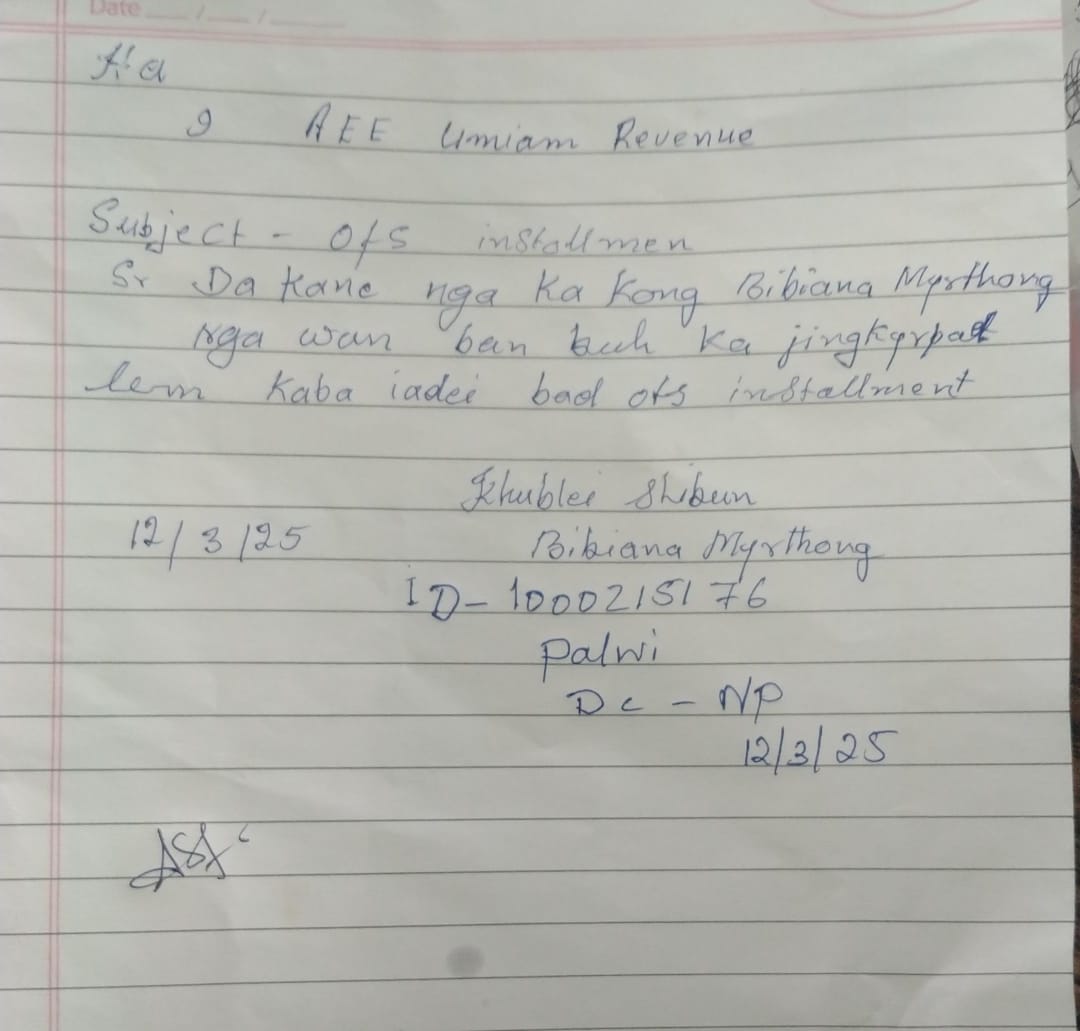 Date __/__/__
Ha
I AEE Umiam Revenue
Subject - Ots installmen
Sr Da Kane nga Ka Kong Bibiana Myrthong
nga wan ban buh Ka jingkyrpad
lem Kaba iadei bad ots installment
Khublei Shibun
12/3/25 Bibiana Myrthong
ID- 1000215176
Palwi
Dc - NP
12/3/25